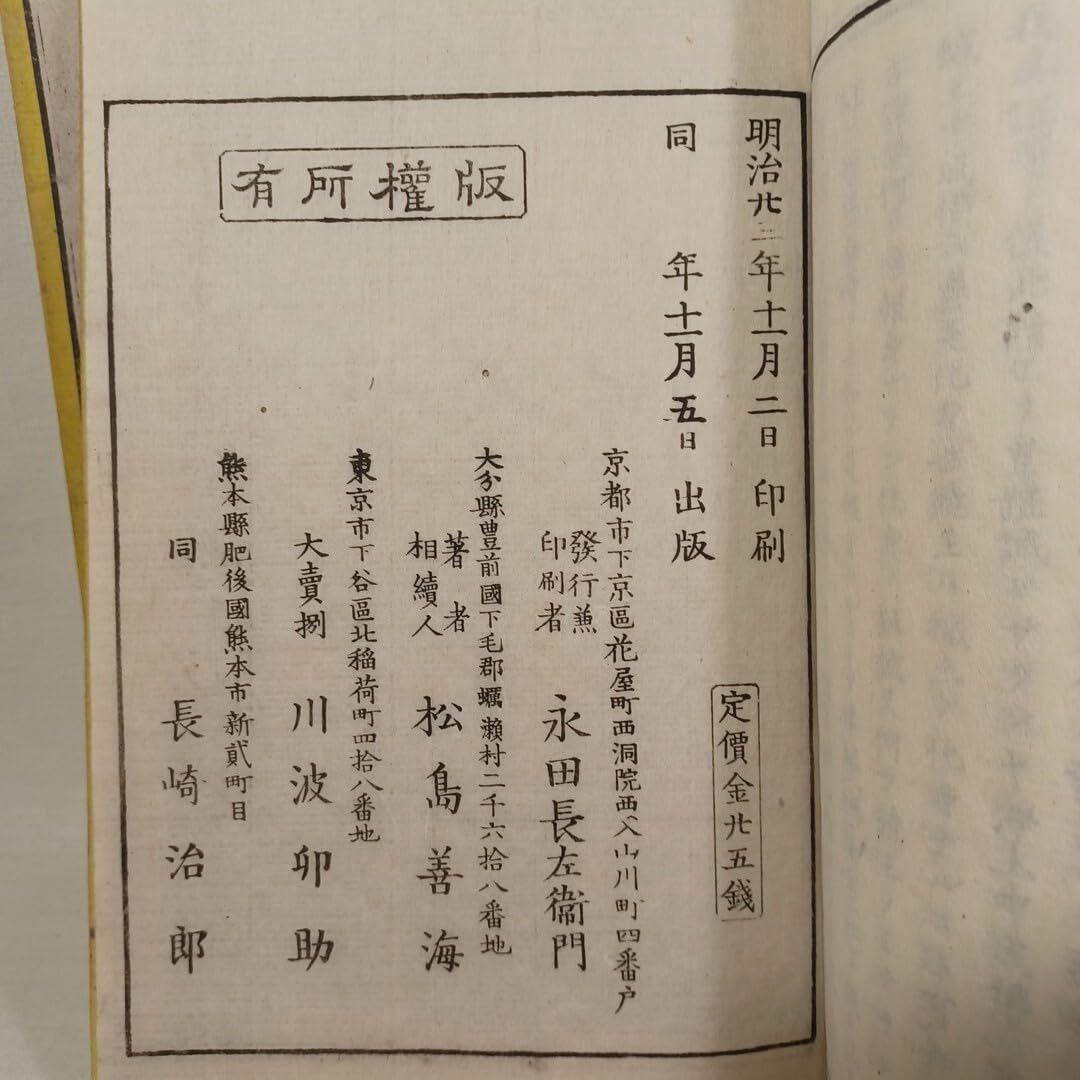 明治廿三年十一月二日印刷
同年十一月五日出版
定價金廿五錢
京都市下京區花屋町西洞院西入山川町四番戸
發行兼
印刷者
永田長左衞門
大分縣豊前國下毛郡蠣瀬村二千六拾八番地
著者
相續人
松島善海
東京市下谷區北稲荷町四拾八番地
大賣捌 川波卯助
熊本縣肥後國熊本市新貳町目
同 長崎治郎
版權所有